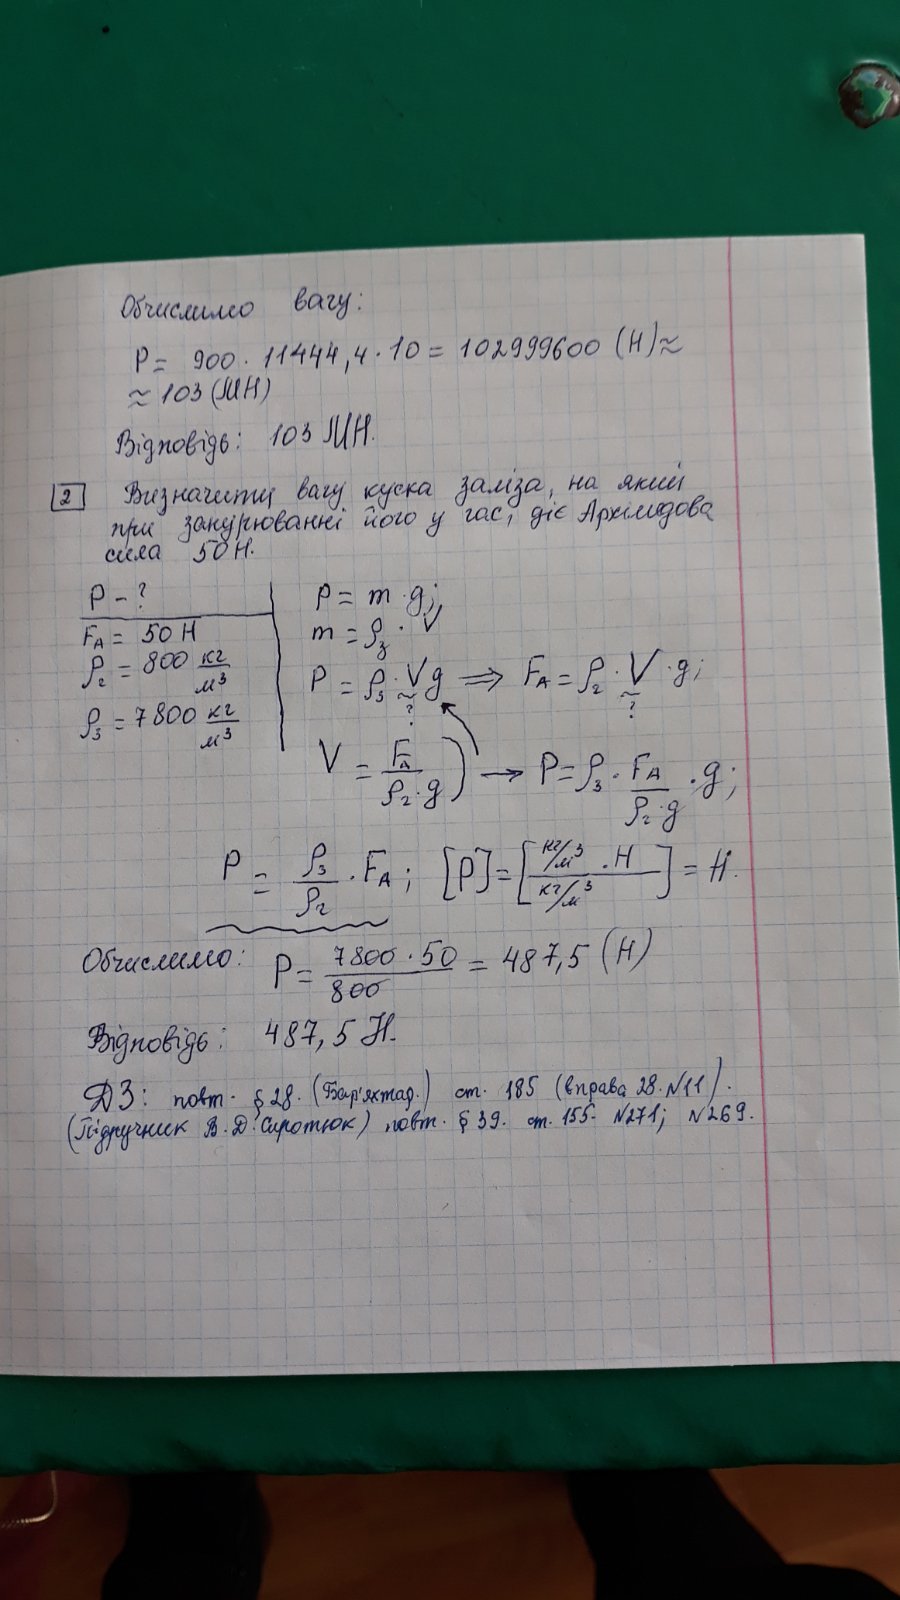 Обчислимо вагу:
P = 900 · 11444,4 · 10 = 102999600 (Н) ≈
≈ 103 (МН)
Відповідь: 103 МН.
2 Визначити вагу куска заліза, на який
при занурюванні його у гас, діє Архімедова
сила 50 Н.
P - ?
F_A = 50 Н
ρ_г = 800 кг/м³
ρ_з = 7800 кг/м³
P = m · g;
m = ρ_з · V
P = ρ_з · V g ⟹ F_A = ρ_г · V · g;
? ?
V = F_A/(ρ_г · g) ) → P = ρ_з · F_A/(ρ_г · g) · g;
P = ρ_з/ρ_г · F_A; [P] = [(кг/м³ · Н)/(кг/м³)] = Н.
Обчислимо: P = (7800 · 50)/800 = 487,5 (Н)
Відповідь: 487,5 Н.
ДЗ: повт. § 28. (Бар'яхтар.) ст. 185 (вправа 28. №11).
(Підручник В. Д. Сиротюк) повт. § 39. ст. 155. №271; №269.